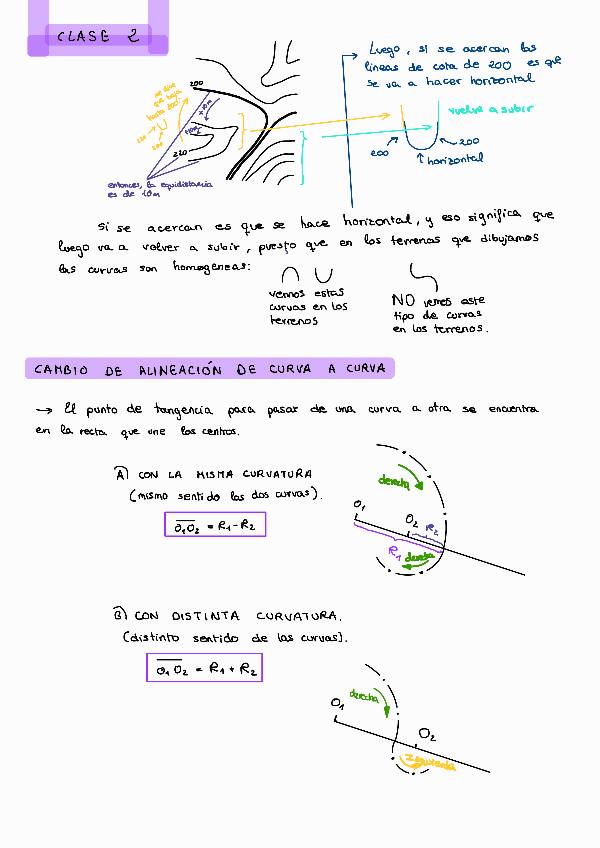 CLASE 2
Luego, si se acercan las
líneas de cota de 200 es que
se va a hacer horizontal
vuelve a subir
200
200
horizontal
200
220
entonces, la equidistancia
es de 10m
Si se acercan es que se hace horizontal, y eso significa que
luego va a volver a subir, puesto que en los terrenos que dibujamos
las curvas son homogeneas:
vemos estas
curvas en los
terrenos
NO vemos este
tipo de curvas
en los terrenos.
CAMBIO DE ALINEACIÓN DE CURVA A CURVA
→ El punto de tangencia para pasar de una curva a otra se encuentra
en la recta que une los centros.
A) CON LA MISMA CURVATURA
(mismo sentido las dos curvas).
O1O2 = R1 - R2
derecha
O1
O2
R2
R1
derecha
B) CON DISTINTA CURVATURA.
(distinto sentido de las curvas).
O1O2 = R1 + R2
derecha
O1
O2
Izquierda